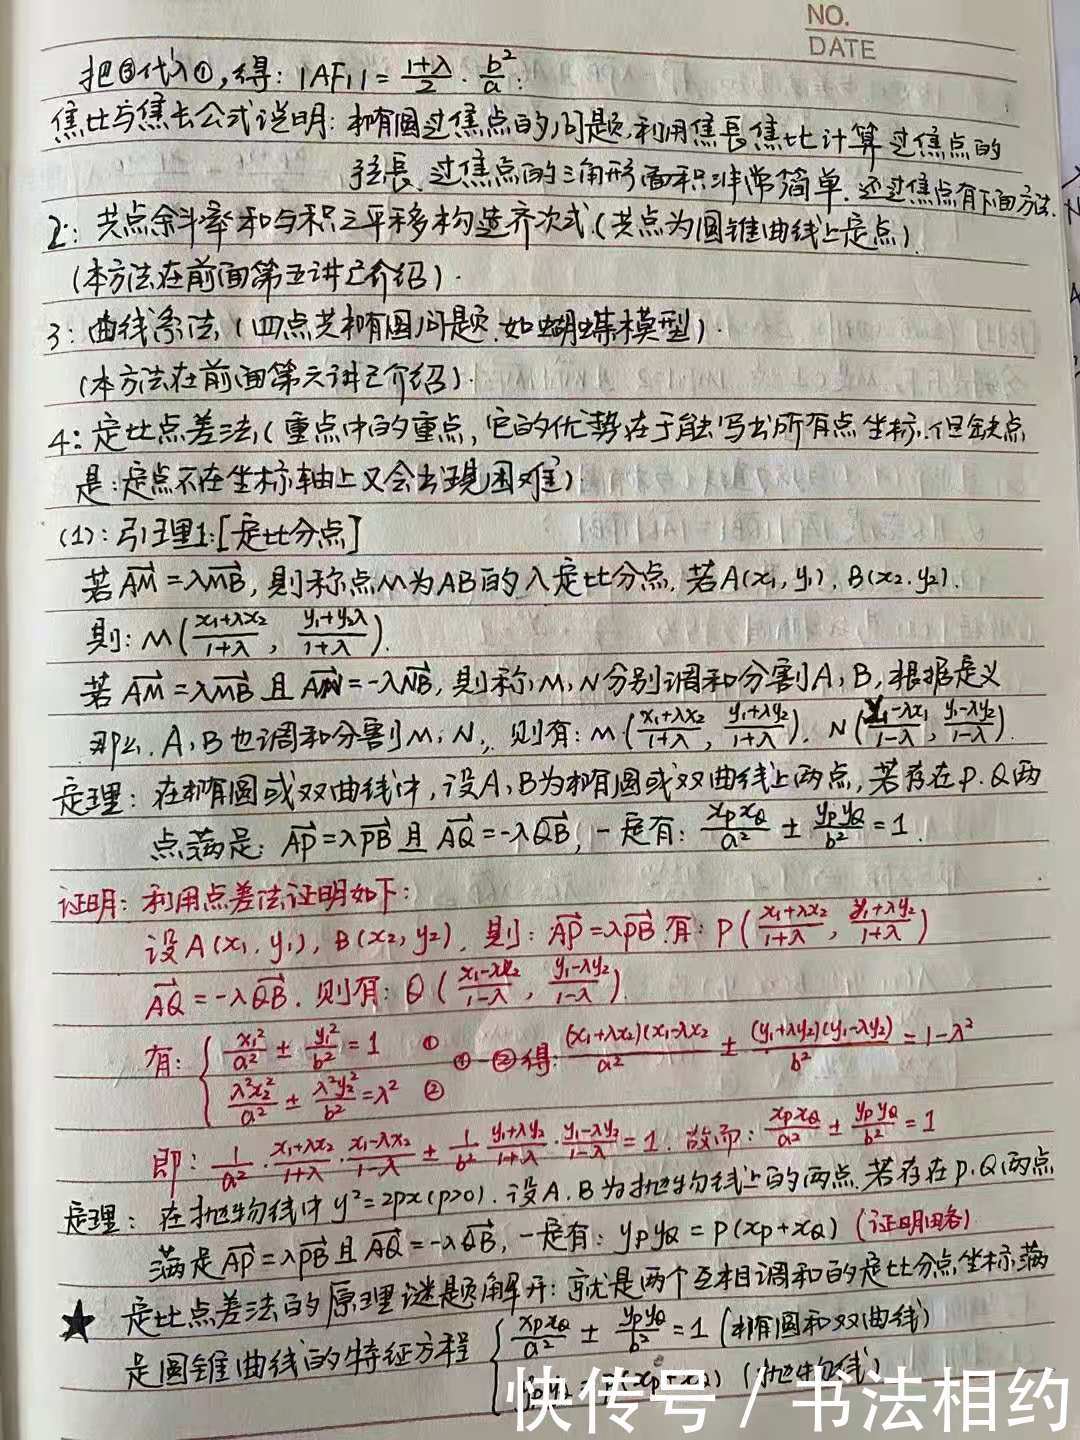 NO.
DATE
把③代入①,得: |AF₁| = (1+λ)/2 · b²/a.
焦比与焦长公式说明: 椭圆过焦点的问题,利用焦長焦比计算过焦点的
弦長、过焦点的三角形面积非常简单.还过焦点有下面方法.
2: 共点余斜率和与积之平移构造齐次式.(共点为圆锥曲线上定点)
(本方法在前面第五讲已介绍).
3: 曲线系法,(四点共椭圆问题.如蝴蝶模型).
(本方法在前面第六讲已介绍).
4: 定比点差法,(重点中的重点,它的优势在于能写出所有点坐标.但缺点
是:定点不在坐标轴上又会出现困难)
(1): 引理1:[定比分点]
若AM→=λMB→,则称点M为AB的λ定比分点.若A(x₁,y₁),B(x₂,y₂).
则: M((x₁+λx₂)/(1+λ), (y₁+y₂λ)/(1+λ)).
若AM→=λMB→且AN→=-λNB→,则称,M,N分别调和分割A,B,根据定义
那么,A,B也调和分割M,N,则有: M((x₁+λx₂)/(1+λ), (y₁+λy₂)/(1+λ)). N((x₁-λx₁)/(1-λ), (y₁-λy₂)/(1-λ)).
定理: 在椭圆或双曲线中,设A,B为椭圆或双曲线上两点,若存在P.Q两
点满足: AP→=λPB→且AQ→=-λQB→,一定有: xPxQ/a² ± yPyQ/b² = 1.
证明: 利用点差法证明如下:
设A(x₁,y₁),B(x₂,y₂),则: AP→=λPB→.有: P((x₁+λx₂)/(1+λ), (y₁+λy₂)/(1+λ))
AQ→=-λQB→.则有: Q((x₁-λx₂)/(1-λ), (y₁-λy₂)/(1-λ)).
有: { x₁²/a² ± y₁²/b² = 1 ① ①-②得: (x₁+λx₂)(x₁-λx₂)/a² ± (y₁+λy₂)(y₁-λy₂)/b² = 1-λ²
λ²x₂²/a² ± λ²y₂²/b² = λ² ②
即: 1/a² · (x₁+λx₂)/(1+λ) · (x₁-λx₂)/(1-λ) ± 1/b² · (y₁+λy₂)/(1+λ) · (y₁-λy₂)/(1-λ) = 1. 故而: xPxQ/a² ± yPyQ/b² = 1
定理: 在抛物线中y²=2px(p>0).设A.B为抛物线上的两点.若存在P.Q两点
满足AP→=λPB→且AQ→=-λQB→,一定有: yPyQ = P(xP+xQ) (证明略)
★ 定比点差法的原理谜题解开: 就是两个互相调和的定比分点坐标满
足圆锥曲线的特征方程 { xPxQ/a² ± yPyQ/b² = 1 (椭圆和双曲线)
(抛物线)
快传号 / 书法相约